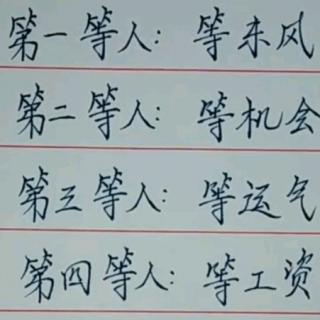 第一等人：等东风
第二等人：等机会
第三等人：等运气
第四等人：等工资